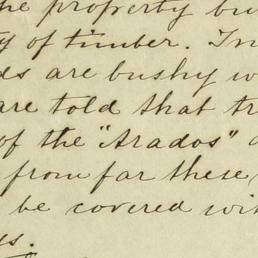 the property bu
y of timber. In
ds are bushy w
are told that tr
of the "Arados" a
from far these
be covered wit
s.